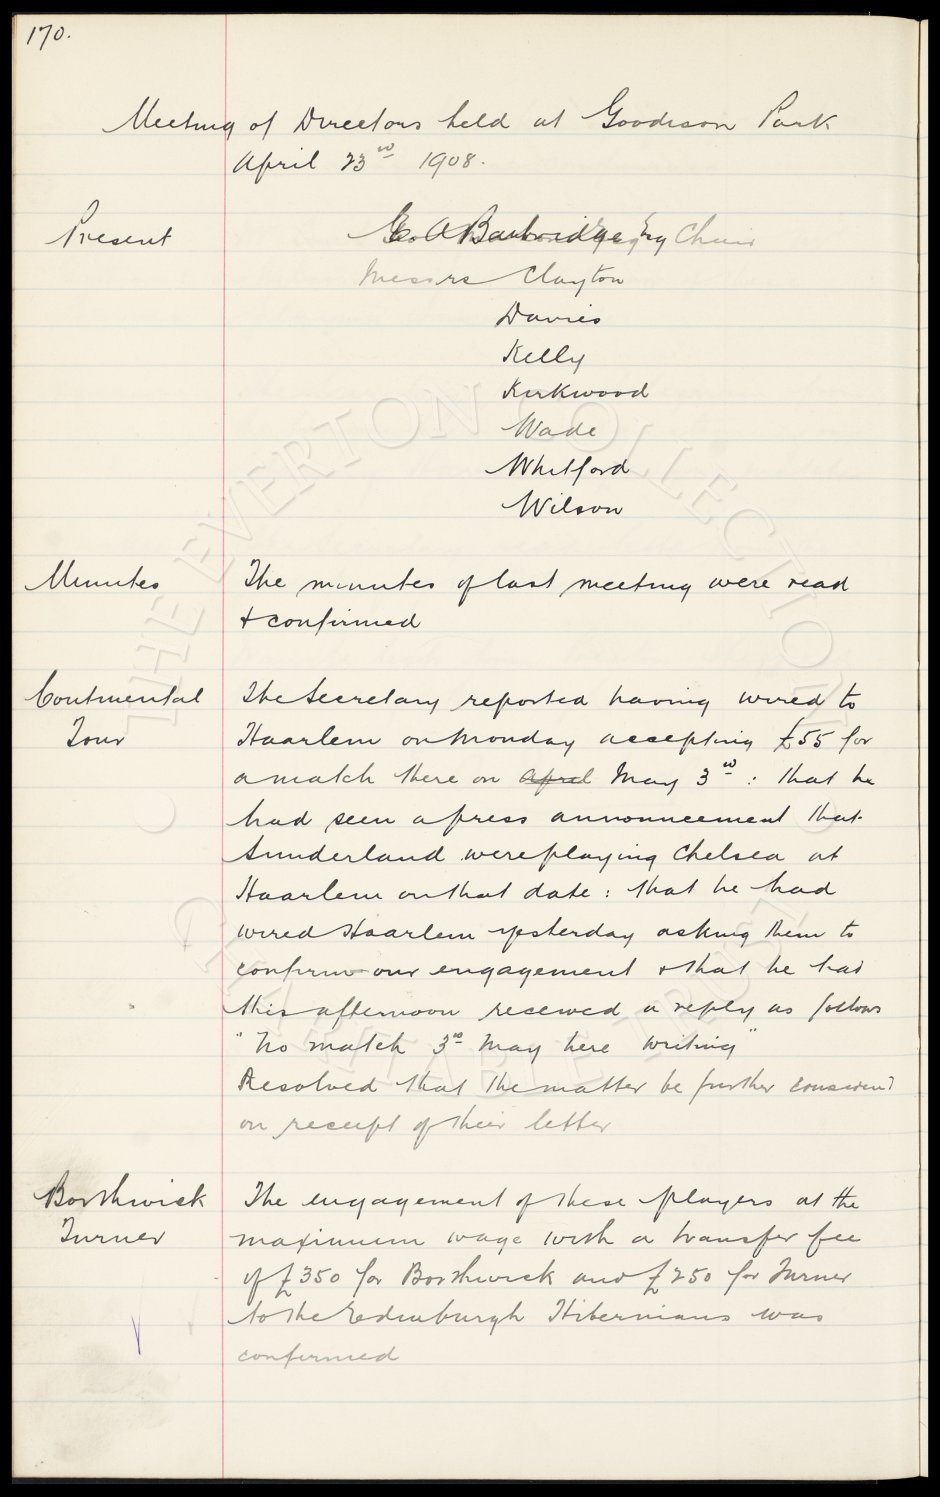 170.
Meeting of Directors held at Goodison Park
April 23rd 1908.
Present
Bainbridge Esq Chair
Messrs Clayton
Davies
Kelly
Kirkwood
Wade
Whitford
Wilson
Minutes
The minutes of last meeting were read
& confirmed
Continental
Tour
The Secretary reported having wired to
Haarlem on Monday accepting £55 for
a match there on April May 3rd : that he
had seen a press announcement that
Sunderland were playing Chelsea at
Haarlem on that date : that he had
wired Haarlem yesterday asking them to
confirm our engagement & that he had
this afternoon received a reply as follows
"No match 3rd May here writing"
Resolved that the matter be further considered
on receipt of their letter
Borthwick
Turner
The engagement of these players at the
maximum wage with a transfer fee
of £350 for Borthwick and £250 for Turner
to the Edinburgh Hibernians was
confirmed
THE EVERTON COLLECTION
CHARITABLE TRUST